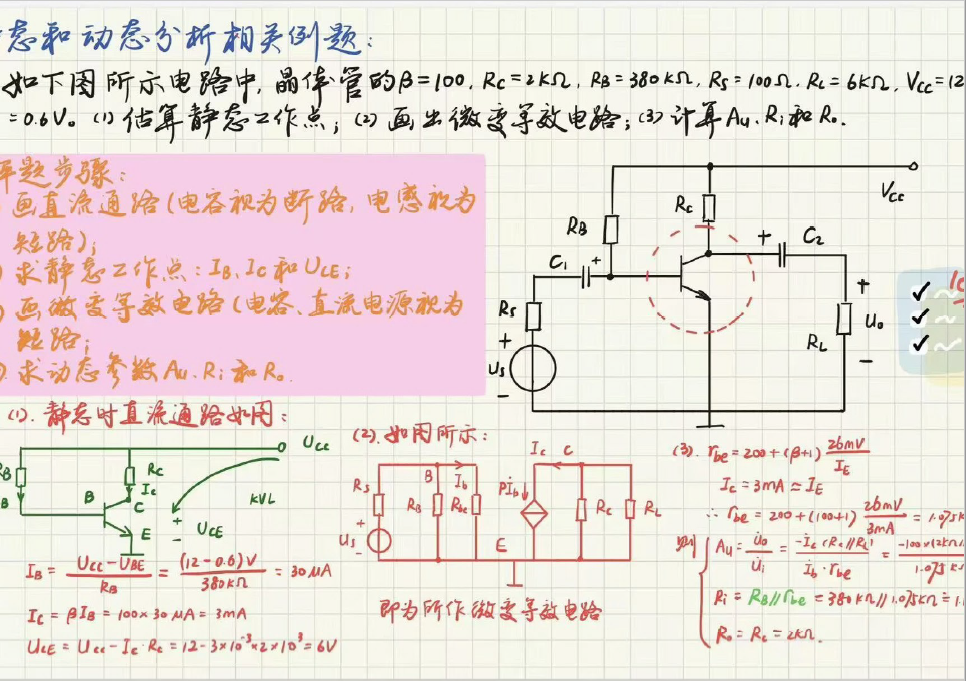 态和动态分析相关例题:
如下图所示电路中,晶体管的β=100, RC=2kΩ, RB=380kΩ, RS=100Ω, RL=6kΩ, VCC=12
=0.6V。(1)估算静态工作点;(2)画出微变等效电路;(3)计算Au、Ri和Ro.
解题步骤:
画直流通路(电容视为断路,电感视为
短路);
)求静态工作点:IB、IC和UCE;
)画微变等效电路(电容、直流电源视为
短路;
).求动态参数Au、Ri和Ro.
VCC
RB
RC
C1
+
+
C2
RS
+
uS
-
+
Uo
RL
-
(1).静态时直流通路如图:
UCC
RB
B
RC
IC
B
C
E
+
UCE
-
KVL
IB = (UCC-UBE)/RB = (12-0.6)V/380kΩ = 30μA
IC = βIB = 100×30μA = 3mA
UCE = UCC-IC·RC = 12-3×10⁻³×2×10³ = 6V
(2).如图所示:
RS
+
uS
-
B
Ib
RB
Rbe
E
IC
C
βİb
RC
RL
即为所作微变等效电路
(3). rbe = 200+(β+1) 26mV/IE
IC = 3mA ≈ IE
∴ rbe = 200+(100+1) 26mV/3mA = 1.075k
则
Au = U̇o/U̇i = -İc(RC//RL)/İb·rbe = -100×(2kΩ//
1.075k
Ri = RB//rbe = 380kΩ//1.075kΩ = 1.
Ro = RC = 2kΩ.